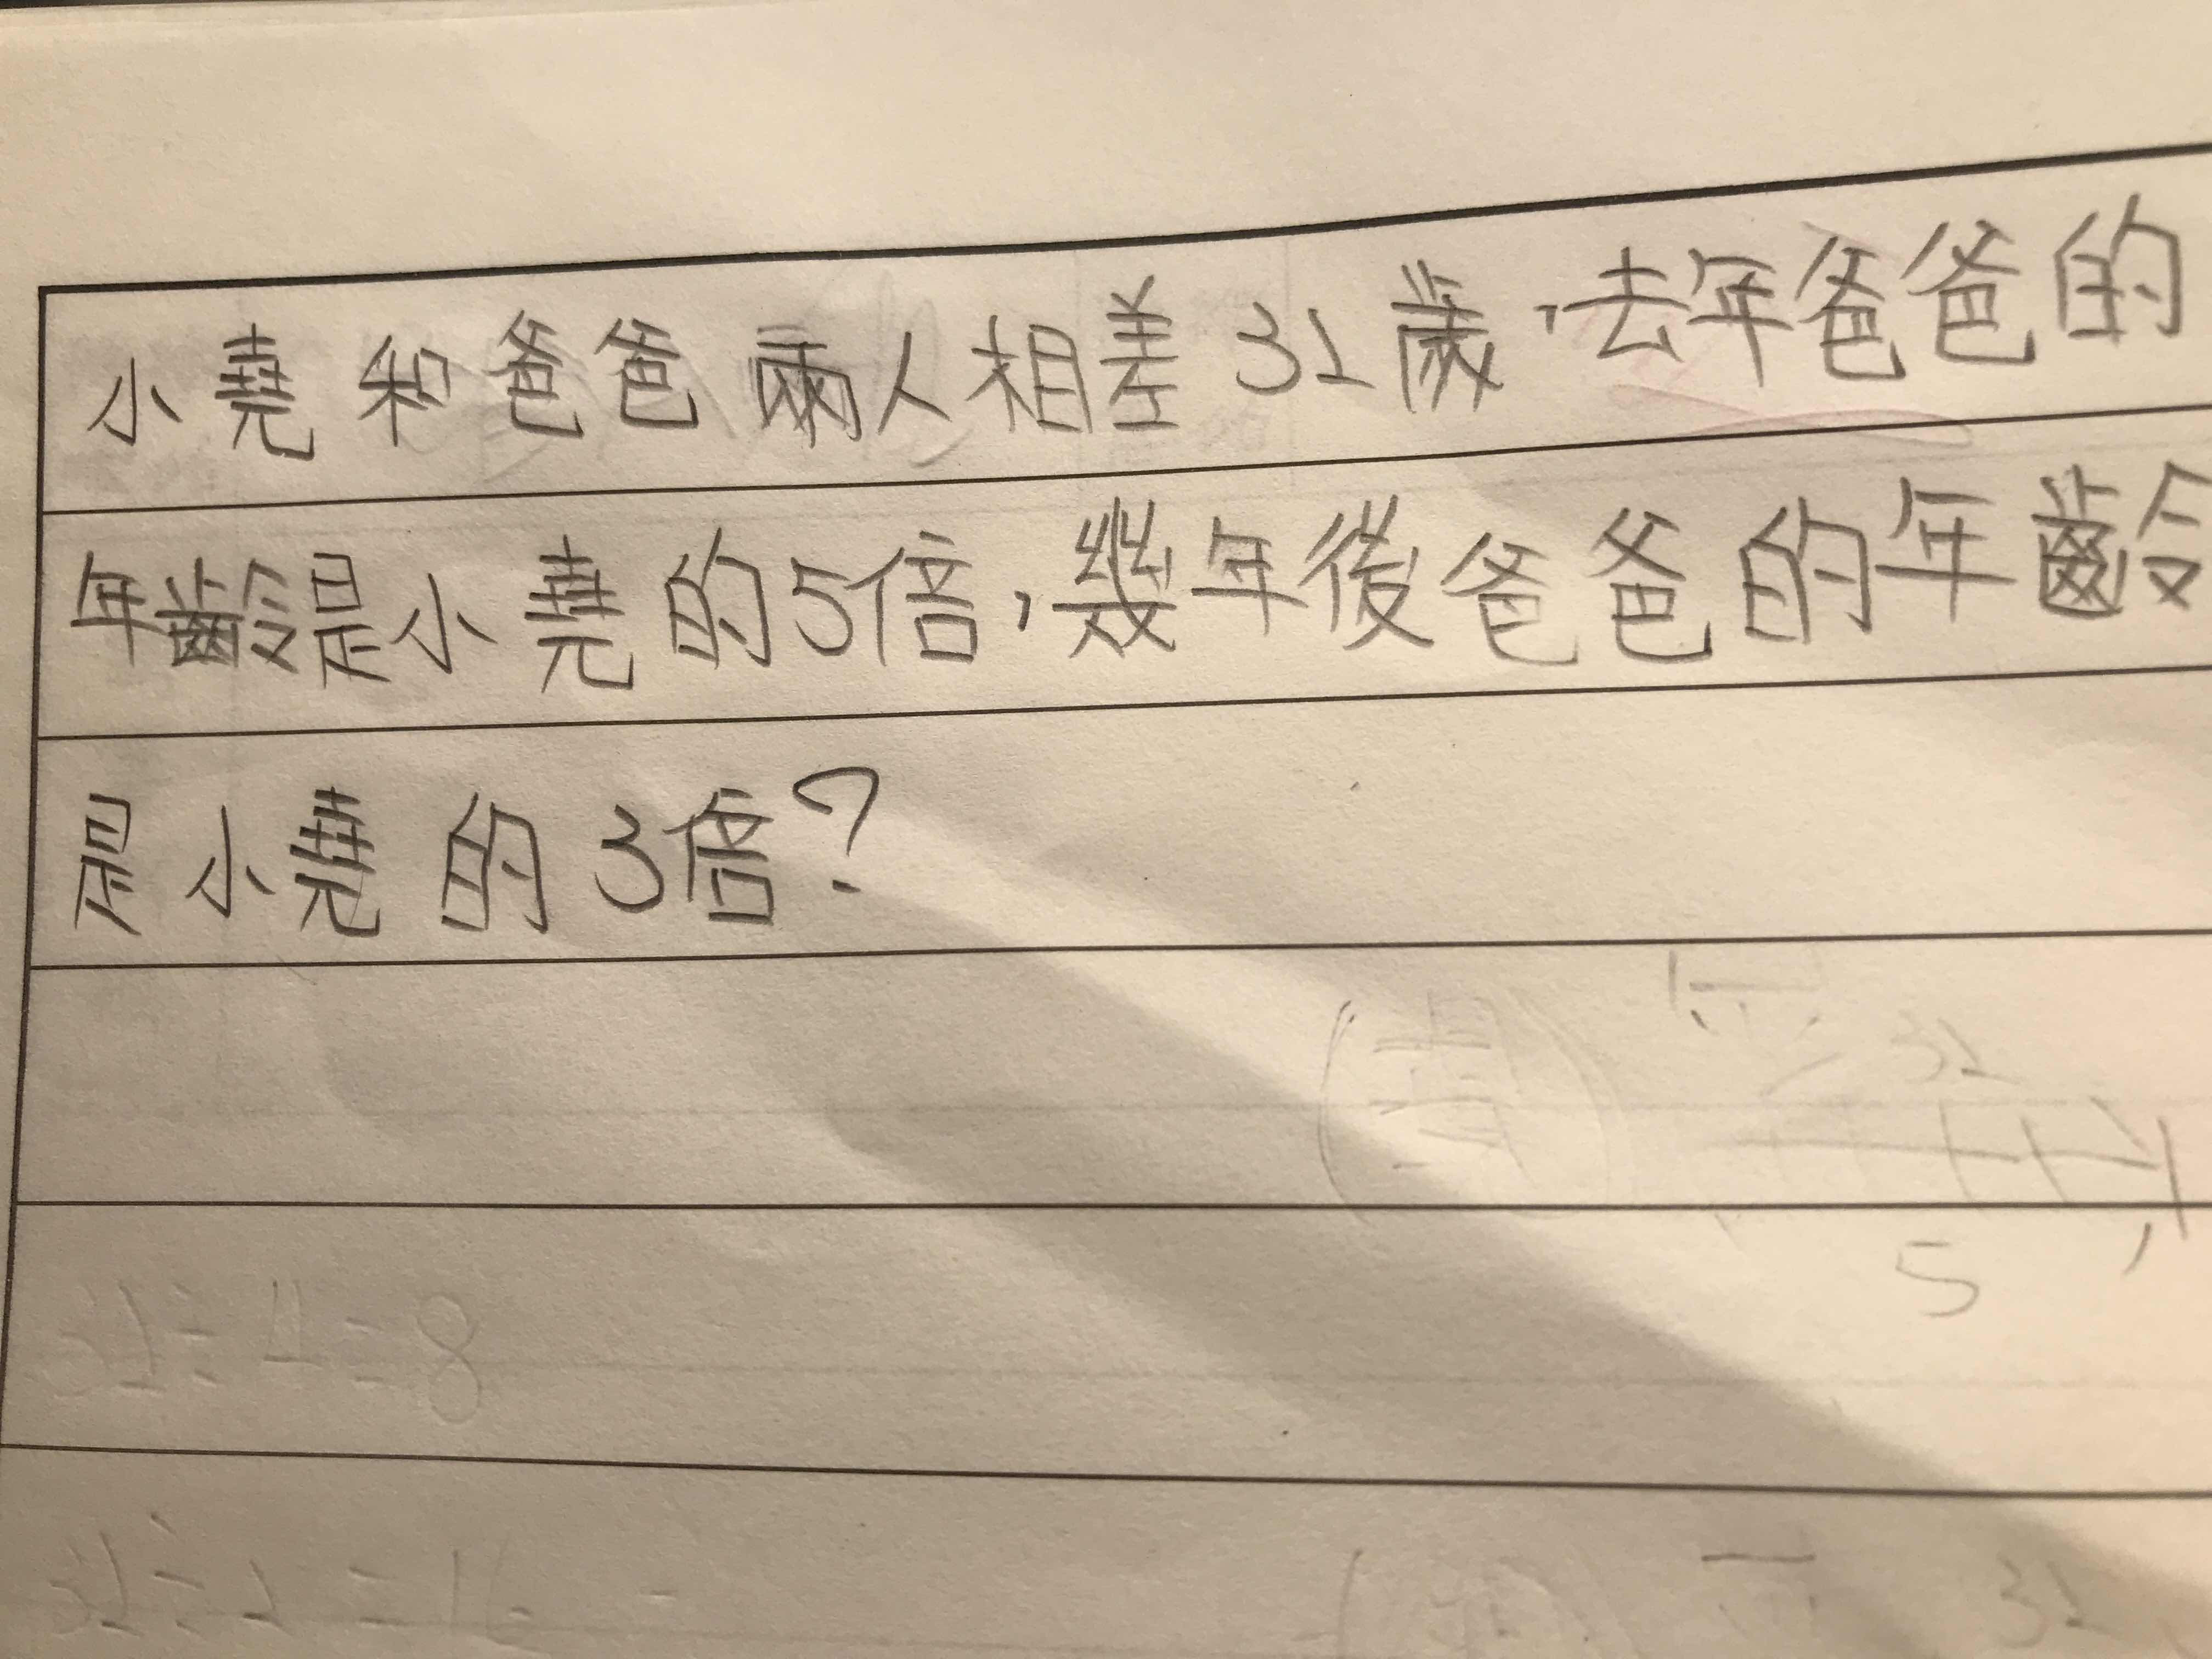 小堯和爸爸兩人相差32歲,去年爸爸的
年齡是小堯的5倍,幾年後爸爸的年齡
是小堯的3倍?
32
5
32÷4=8
32÷2=16
32